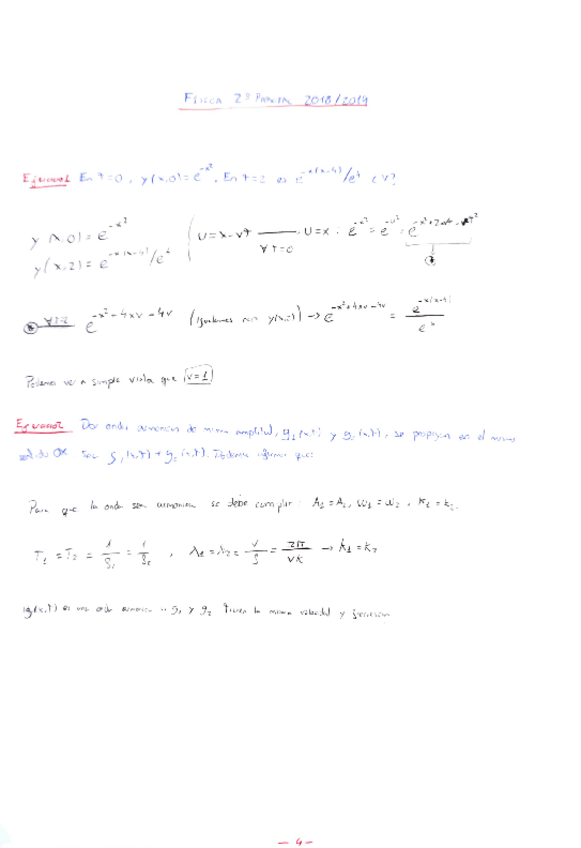 FÍSICA 2º PARCIAL 2018/2019
Ejercicio1 En t=0, y(x,0)=e^{-x²}. En t=2 es e^{-x(x-4)}/e⁴ ¿V?
y(x,0)=e^{-x²}
U=x-vt U=x. e^{-x²}=e^{-u²}=
y(x,2)=e^{-x(x-4)}/e⁴
t=0
e^{-x²-4xv-4v} (Igualamos con y(x,2)) → e^{-x²+4xv-4v} = e^{-x(x-4)}/e⁴
Podemos ver a simple vista que v=1
Dos ondas armónicas de misma amplitud, y₁(x,t) y y₂(x,t), se propagan en el mismo
sentido OX. y₁(x,t) + y₂(x,t). Podemos afirmar que:
Para que la onda sea armónica se debe cumplir: A₁=A₂, ω₁=ω₂, k₁=k₂.
T₁=T₂=1/f₁=1/f₂, λ₁=λ₂=V/f=2π/VK → k₁=k₂
y(x,t) es una onda armónica y₁ y y₂ tienen la misma velocidad y frecuencia
- 4 -